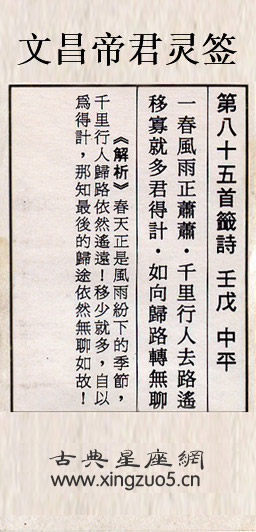 文昌帝君灵签
第八十五首籤詩 壬戊 中平
一春風雨正蕭蕭・千里行人去路遙
移寡就多君得計・如向歸路轉無聊
《解析》春天正是風雨紛下的季節，
千里行人歸路依然遙遠！移少就多，自以
為得計，那知最後的歸途依然無聊如故！
古典星座網
www.xingzuo5.cn